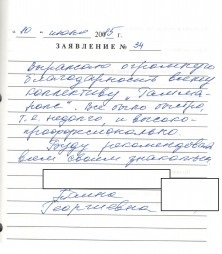 "10" июня 2005 г.
ЗАЯВЛЕНИЕ № 34
Выражаю огромную
благодарность всему
коллективу „Гамма-
Все было быстро,
т.е. недолго, и высоко-
профессионально.
Буду рекомендовать
всем своим знакомым
Георгиевна